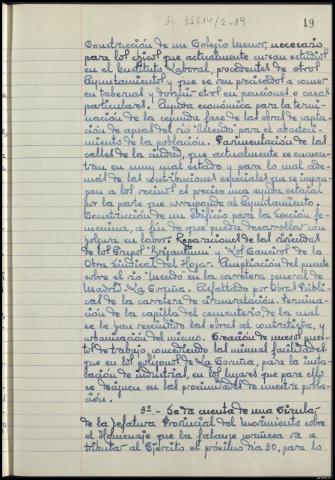 19
Construcción de un Colegio Menor, necesario
para los chicos que actualmente cursan estudios
en el Instituto Laboral, procedentes de otros
Ayuntamientos y que se ven precisados a comer
en tabernas y dormir otros en pensiones o casas
particulares. Ayuda económica para la termi-
nación de la segunda fase de las obras de capta-
ción de aguas del río Mendo para el abasteci-
miento de la población. Pavimentación de las
calles de la ciudad, que actualmente se encuen-
tran en muy mal estado y para lo cual ade-
más de las contribuciones especiales que se impon-
gan a los vecinos es preciso una ayuda estatal
por la parte que corresponde al Ayuntamiento.
Construcción de un Edificio para la Sección Fe-
menina, a fin de que pueda desarrollar con
holgura su labor. Reparaciones de las viviendas
de los Grupos Brigantium y Los Caneiros de la
Obra Sindical del Hogar. Ampliación del puente
sobre el río Mendo en la carretera general de
Madrid-La Coruña. Asfaltado por Obras Públi-
cas de la carretera de circunvalación. Termina-
ción de la capilla del cementerio, de la cual
se le han rescindido las obras al contratista, y
urbanización del mismo. Creación de nuevos pues-
tos de trabajo, concediendo las mismas facilidades
que en los polígonos de La Coruña, para la insta-
lación de industrias, en los lugares que para ello
se designen en las proximidades de nuestra pobla-
ción.
3º.- Se da cuenta de una Circular
de la Jefatura Provincial del Movimiento sobre
el Homenaje que la Falange coruñesa va a
tributar al Ejército el próximo día 30, para lo